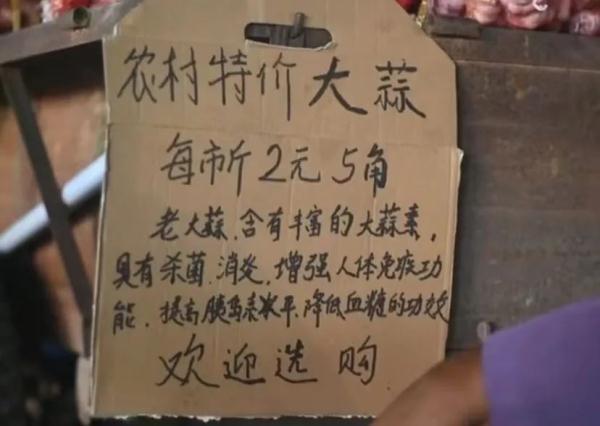 农村特价大蒜
每市斤2元5角
老大蒜.含有丰富的大蒜素,
具有杀菌.消炎.增强人体免疫功
能.提高胰岛素水平.降低血糖的功效
欢迎选购